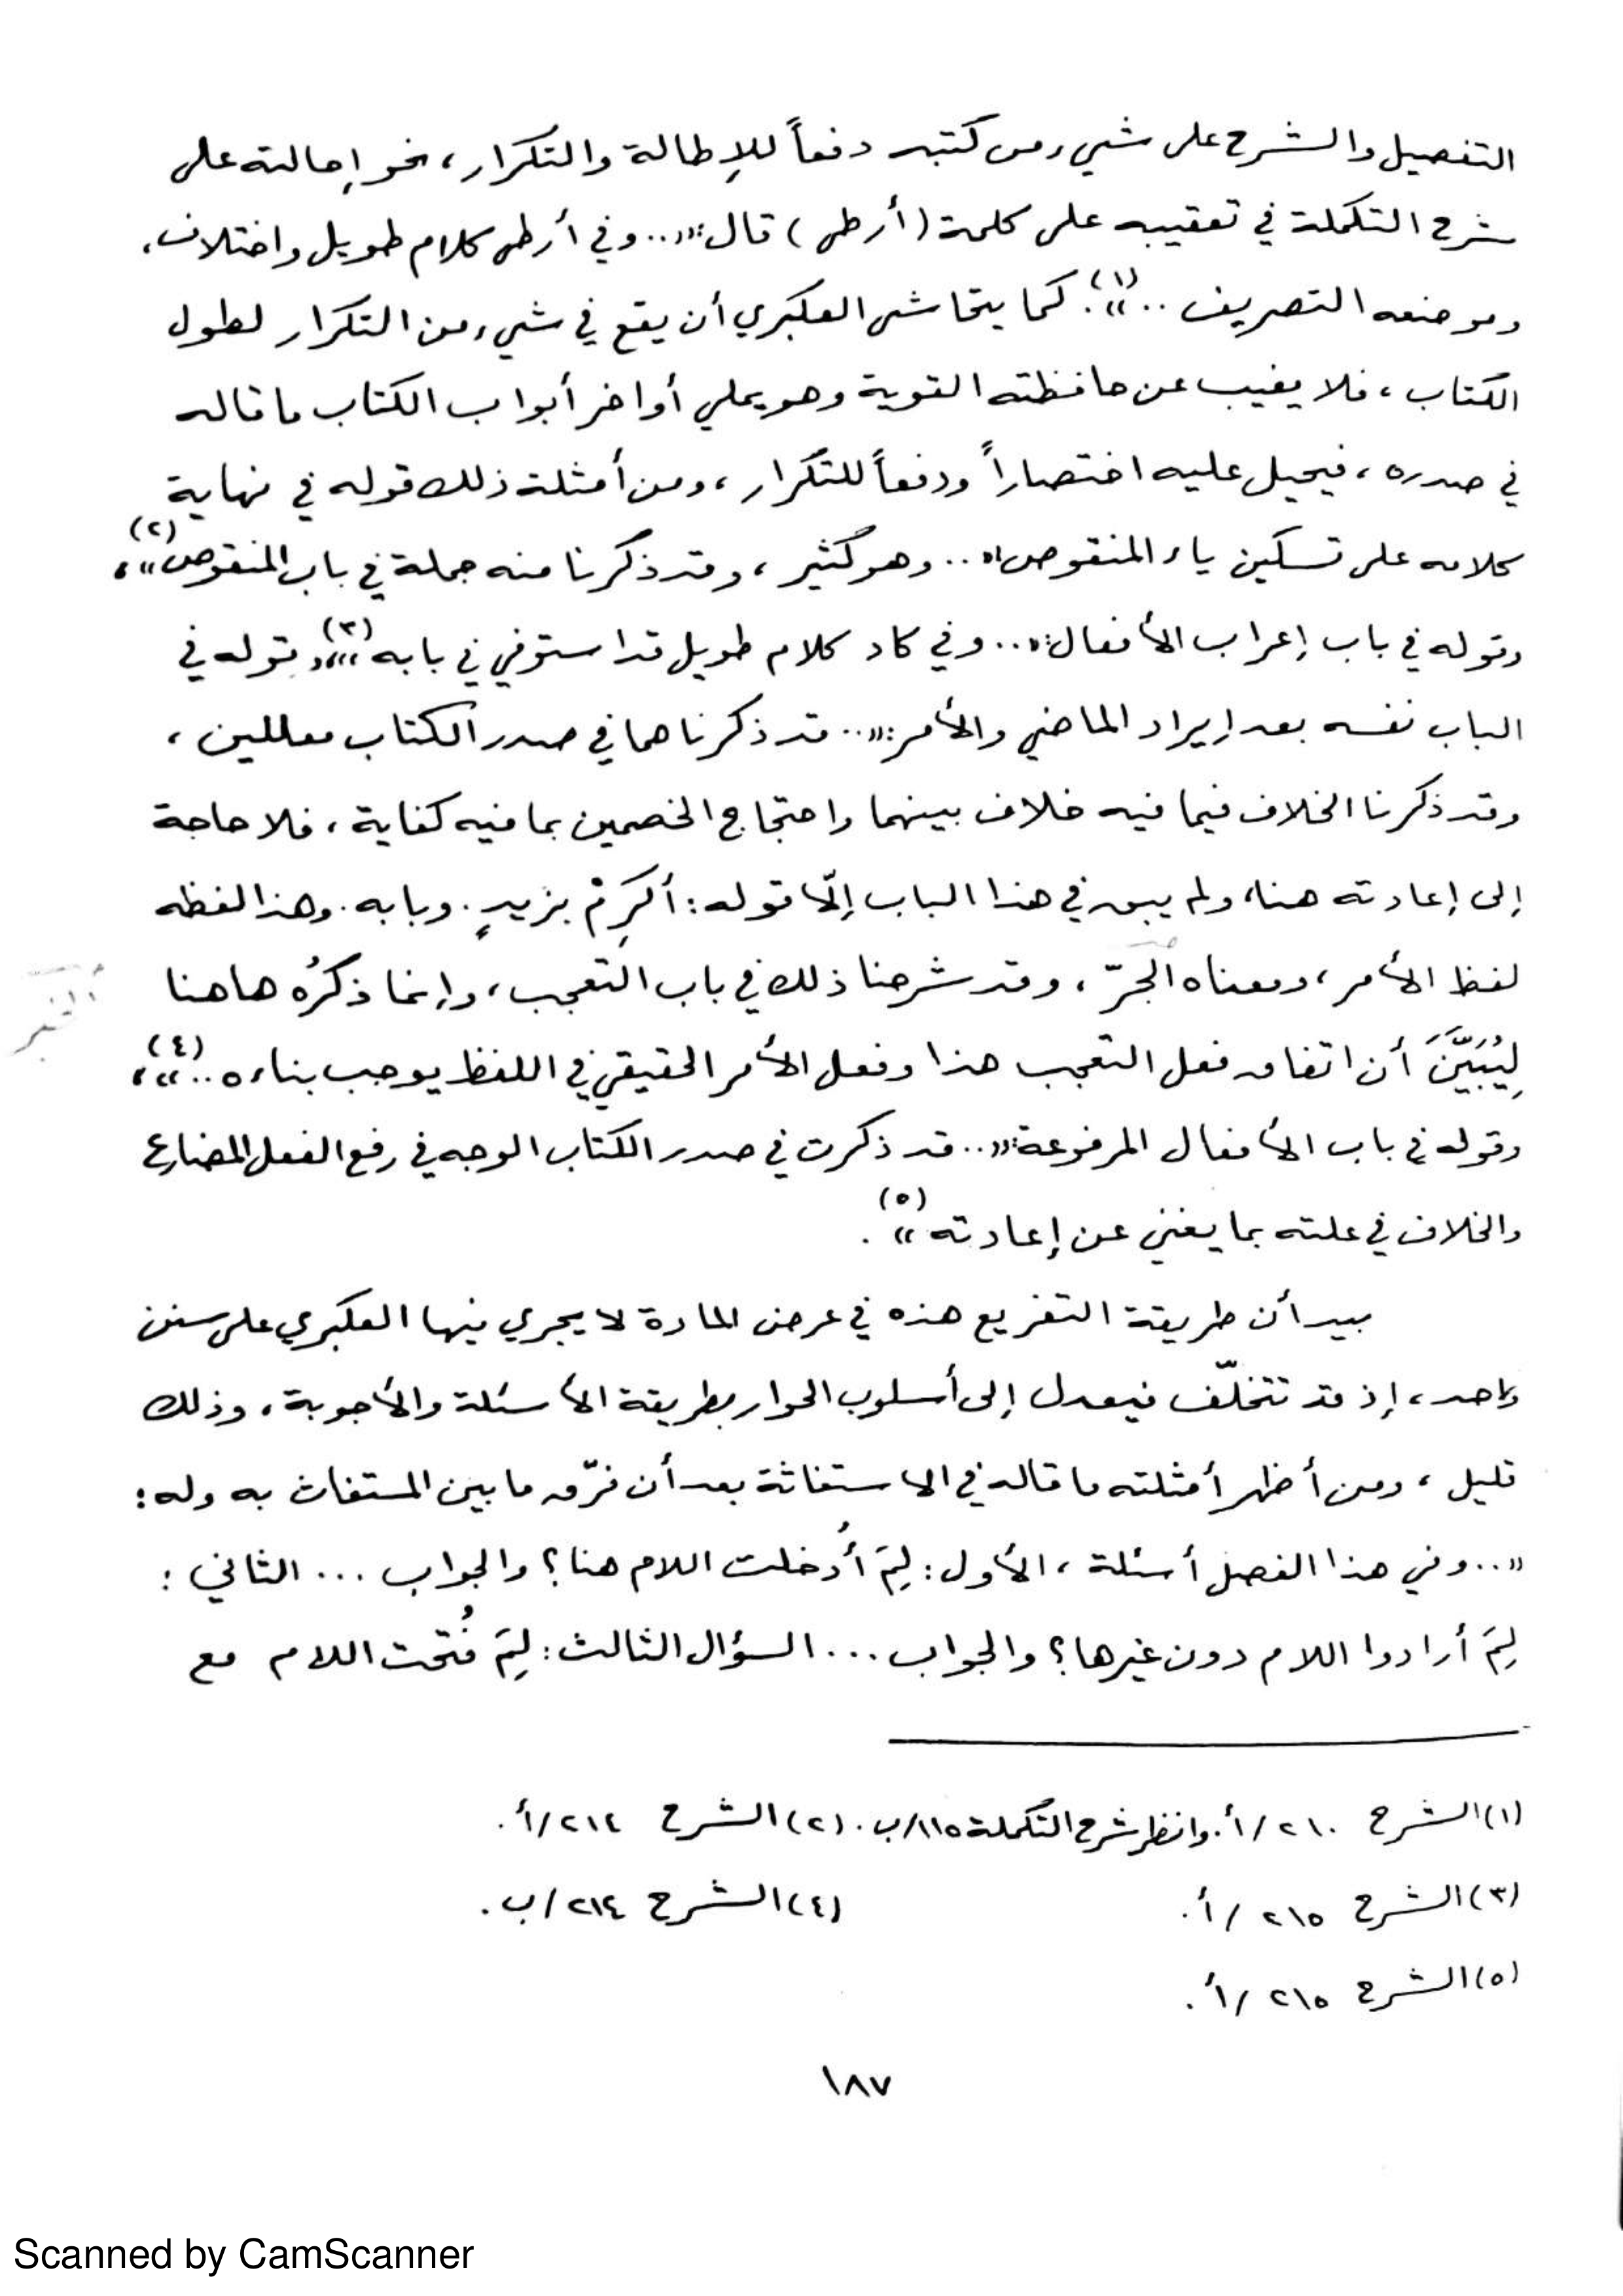 التفصيل والشرح على شيء من كتبه دفعاً للإطالة والتكرار، نحو إحالته على
شرح التكملة في تعقيبه على كلمة (أرطى) قال: «.. وفي أرطى كلام طويل واختلاف،
وموضعه التصريف ..»(١). كما يتحاشى العكبري أن يقع في شيء من التكرار لطول
الكتاب، فلا يغيب عن حافظته القوية وهو يملي أواخر أبواب الكتاب ما قاله
في صدره، فيحيل عليه اختصاراً ودفعاً للتكرار، ومن أمثلة ذلك قوله في نهاية
كلامه على تسكين ياء المنقوص: «.. وهو كثير، وقد ذكرنا منه جملة في باب المنقوص»(٢)،
وقوله في باب إعراب الأفعال: «... وفي كاد كلام طويل قد استوفي في بابه»(٣)، وقوله في
الباب نفسه بعد إيراد الماضي والأمر: «.. قد ذكرناهما في صدر الكتاب معللين،
وقد ذكرنا الخلاف فيما فيه خلاف بينهما واحتجاج الخصمين بما فيه كفاية، فلا حاجة
إلى إعادته هنا، ولم يبق في هذا الباب إلّا قوله: أكرِمْ بزيدٍ. وبابه. وهذا لفظه
لفظ الأمر، ومعناه الجرّ، وقد شرحنا ذلك في باب التعجب، وإنما ذكرُه هاهنا
الخبر
لِيُبَيَّنَ أن اتفاق فعل التعجب هذا وفعل الأمر الحقيقي في اللفظ يوجب بناءه ..»(٤)،
وقوله في باب الأفعال المرفوعة: «.. قد ذكرت في صدر الكتاب الوجه في رفع الفعل المضارع
والخلاف في علته بما يغني عن إعادته»(٥).
بيد أن طريقة التفريع هذه في عرض المادة لا يجري فيها العكبري على سنن
واحد، إذ قد تتخلّف فيعدل إلى أسلوب الحوار بطريقة الأسئلة والأجوبة، وذلك
قليل، ومن أظهر أمثلته ما قاله في الاستغاثة بعد أن فرّق ما بين المستغاث به وله:
«.. وفي هذا الفصل أسئلة، الأول: لِمَ أُدخلت اللام هنا؟ والجواب ... الثاني:
لِمَ أرادوا اللام دون غيرها؟ والجواب ... السؤال الثالث: لِمَ فُتحت اللام مع
(١) الشرح ٢١٠/أ. وانظر شرح التكملة ١١٥/ب. (٢) الشرح ٢١٤/أ.
(٣) الشرح ٢١٥/أ. (٤) الشرح ٢١٤/ب.
(٥) الشرح ٢١٥/أ.
١٨٧
Scanned by CamScanner